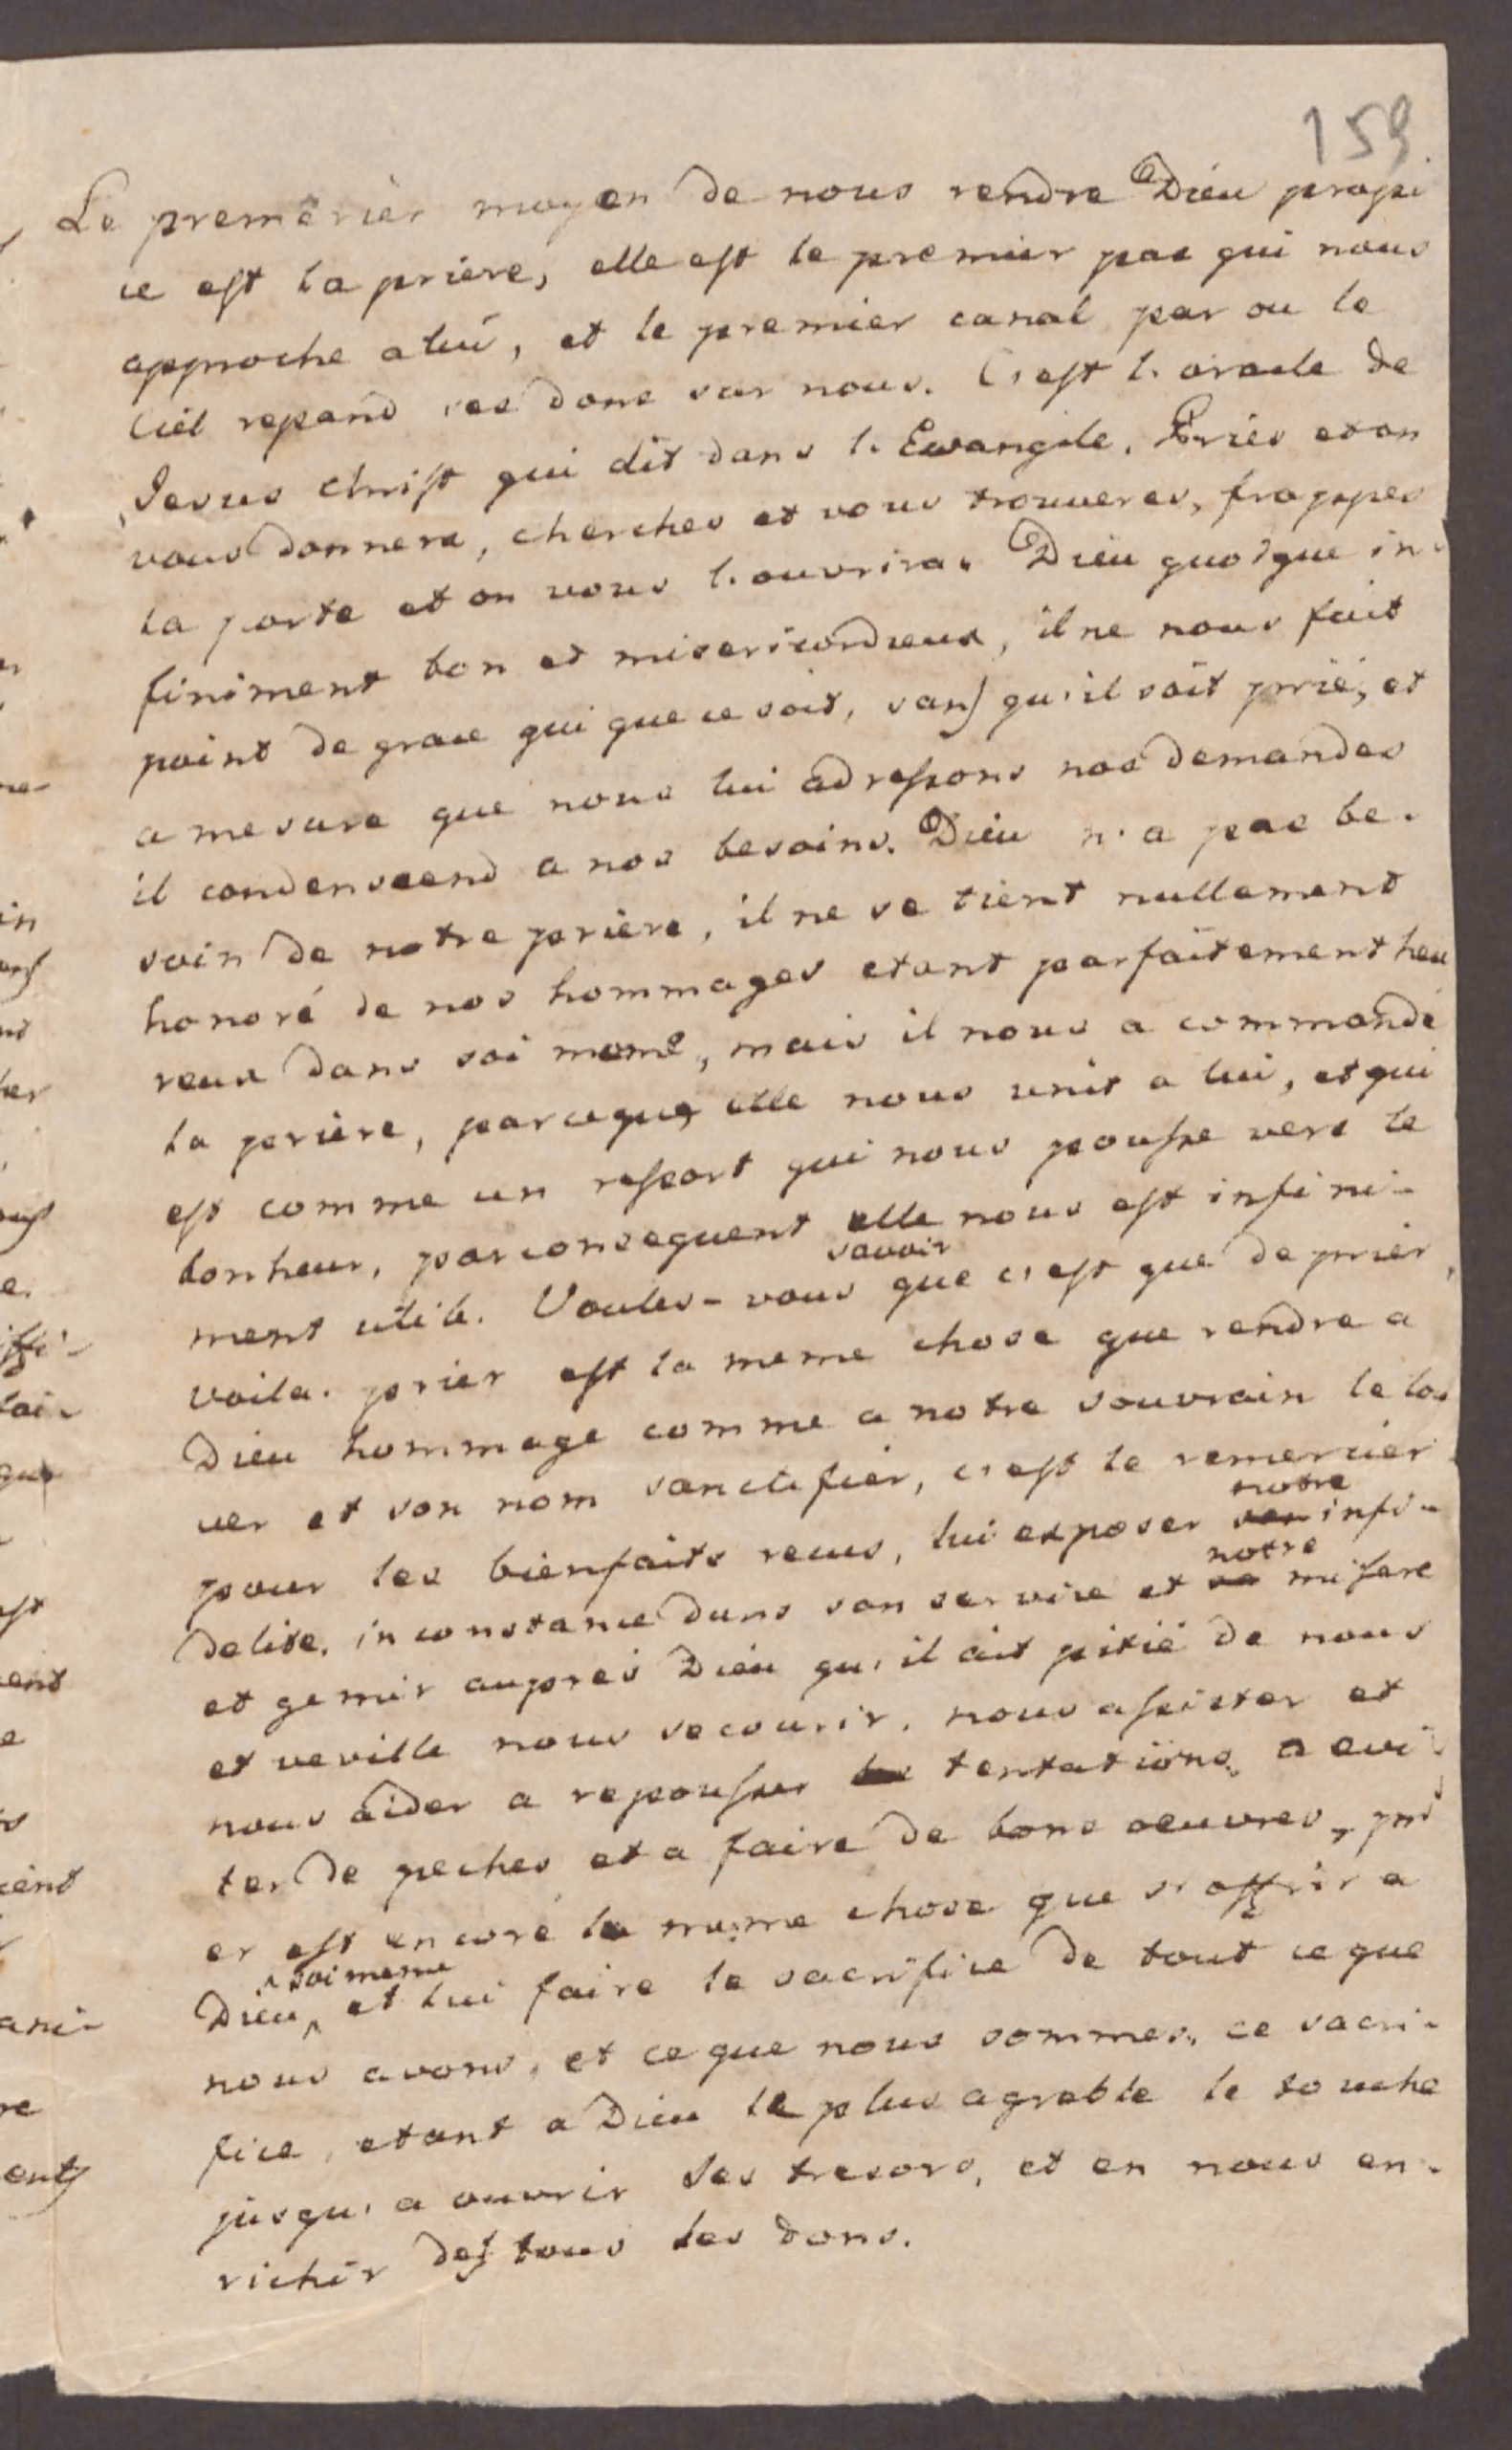 159.
Le premêrier moyen de nous rendre Dieu propi
ce est la priere, elle est le premier pas qui nous
approche a lui, et le premier canal par ou le
Ciel repand ses dons sur nous. C'est l'oracle de
Jesus Christ qui dit dans l'Ewangile. Pries et on
vous donnera, cherches et vous trouveres, frappes
la porte et on vous l'ouvrira. Dieu quoique in-
finiment bon et misericordieux, il ne nous fait
point de grace qui que ce soit, sans qu'il soit prié, et
a mesure que nous lui adressons nos demandes
il condenscend a nos besoins. Dieu n'a pas be-
soin de notre priere, il ne se tient nullement
honoré de nos hommages etant parfaitement heu
reux dans soi meme, mais il nous a commandé
la priere, parceque elle nous unit a lui, et qui
est comme un ressort qui nous pousse vers le
bonheur, parconsequent elle nous est infini-
ment utile. Voules-vous savoir que c'est que de prier,
voila. prier est la meme chose que rendre a
Dieu hommage comme a notre souvrain le lou
er et son nom sanctifier, c'est le remercier
pour les bienfaits recus, lui exposer notre infi-
delite, inconstance dans son service et notre misere
et gemir aupres Dieu qu'il ait pitié de nous
et veville nous secourir, nous assister et
nous aider a repousser tentations, a evi-
ter de peches et a faire de bons oeuvres, pri
er est encore la meme chose que s'offrir a
Dieu soi meme et lui faire le sacrifice de tout ce que
nous avons, et ce que nous sommes, ce sacri-
fice, etant a Dieu le plus agreble le touche
jusqu'a ouvrir ses tresors, et en nous en-
richir des tous les dons.